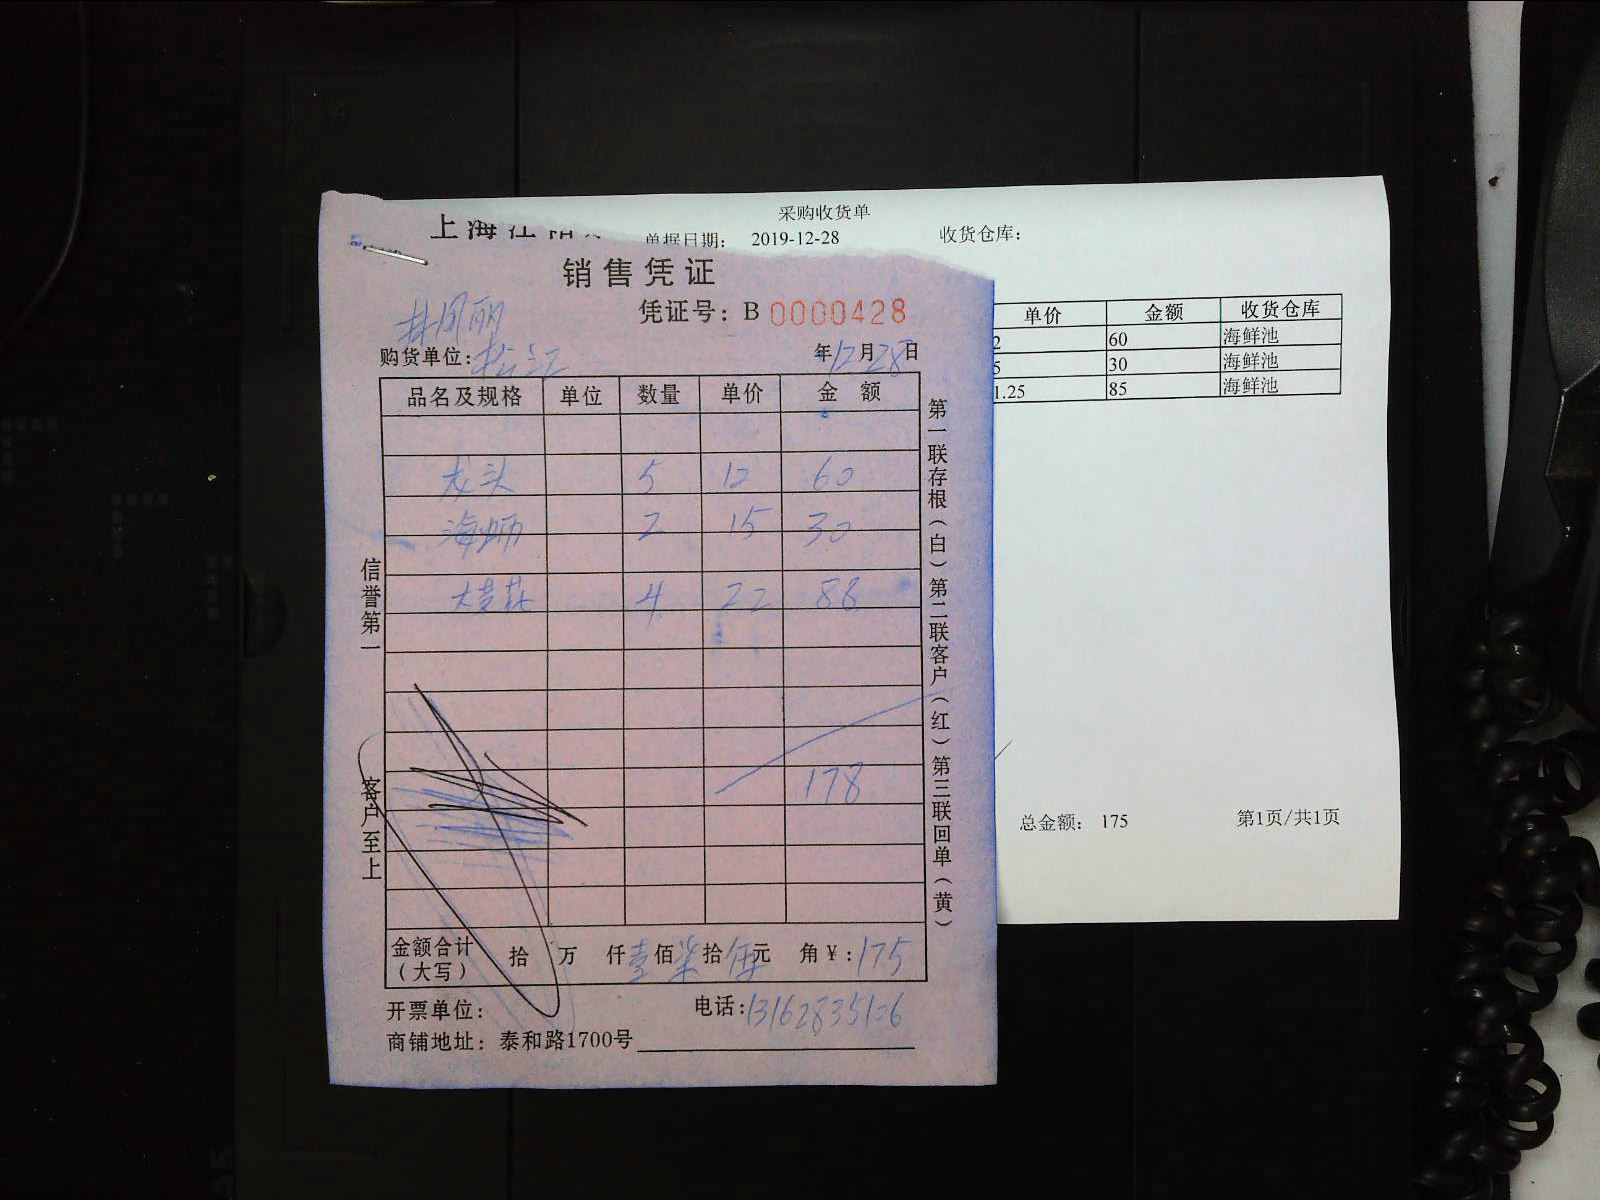 采购收货单
上海
单据日期： 2019-12-28 收货仓库：
销售凭证
凭证号：B 0000428
购货单位：松江 年12月28日
品名及规格 单位 数量 单价 金 额
龙头 5 12 60
海蛎 2 15 30
4 22 88
178
金额合计（大写） 拾 万 仟壹佰柒拾伍元 角￥：175
开票单位： 电话：13162835106
商铺地址：泰和路1700号
信誉第一 客户至上
第一联存根（白）第二联客户（红）第三联回单（黄）
单价 金额 收货仓库
2 60 海鲜池
5 30 海鲜池
1.25 85 海鲜池
总金额： 175 第1页/共1页